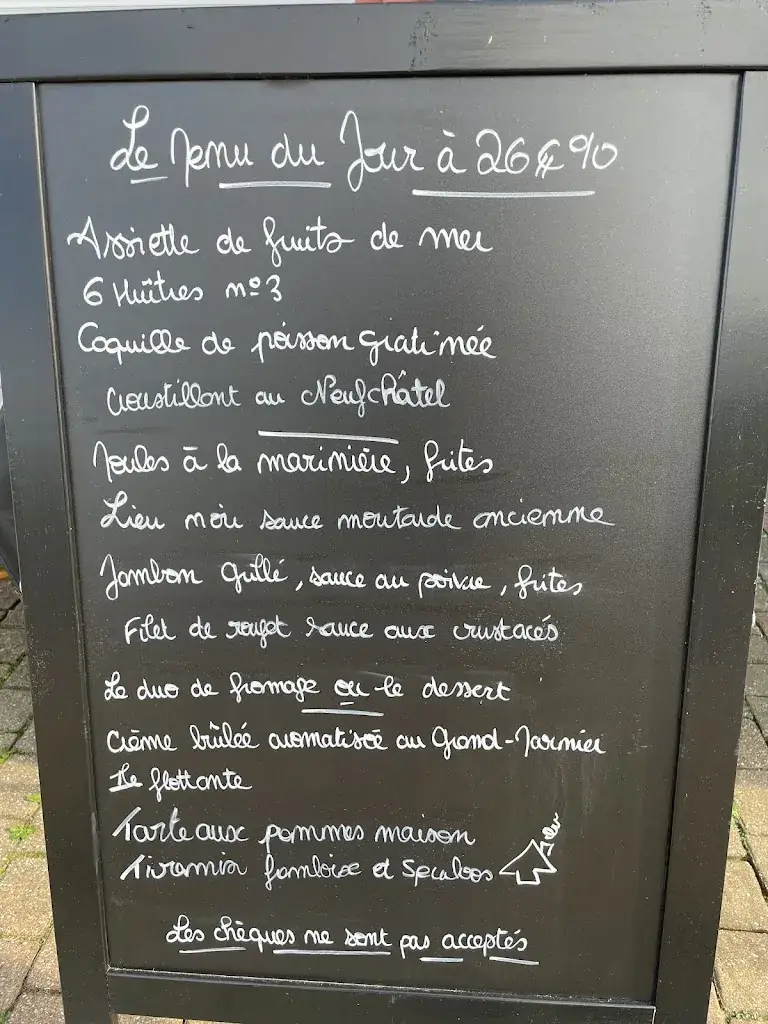 Le Menu du Jour à 26€90
Assiette de fruits de mer
6 Huîtres nº3
Coquille de poisson gratinée
Croustillant au Neufchâtel
Moules à la marinière, frites
Lieu noir sauce moutarde ancienne
Jambon grillé, sauce au poivre, frites
Filet de rouget sauce aux crustacés
Le duo de fromage ou le dessert
Crème brûlée aromatisée au Grand-Marnier
Ile flottante
Tarte aux pommes maison
Tiramisu framboise et Speculoos
Les chèques ne sont pas acceptés